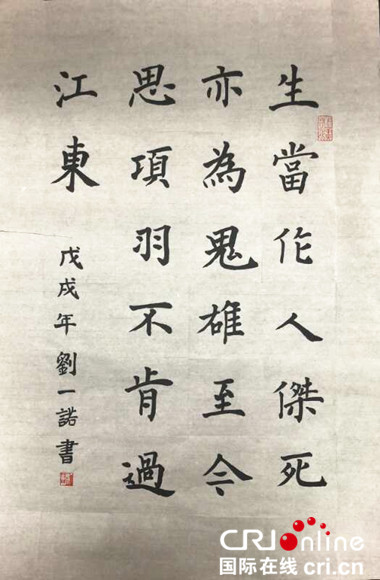 生當作人傑死
亦為鬼雄至今
思項羽不肯過
江東
戊戌年劉一諾書
CRIonline
国际在线 cri.cn